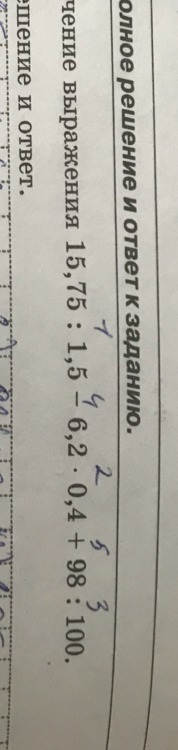 олное решение и ответ к заданию.
чение выражения 15,75 : 1,5 – 6,2 · 0,4 + 98 : 100.
1 4 2 5 3
ешение и ответ.